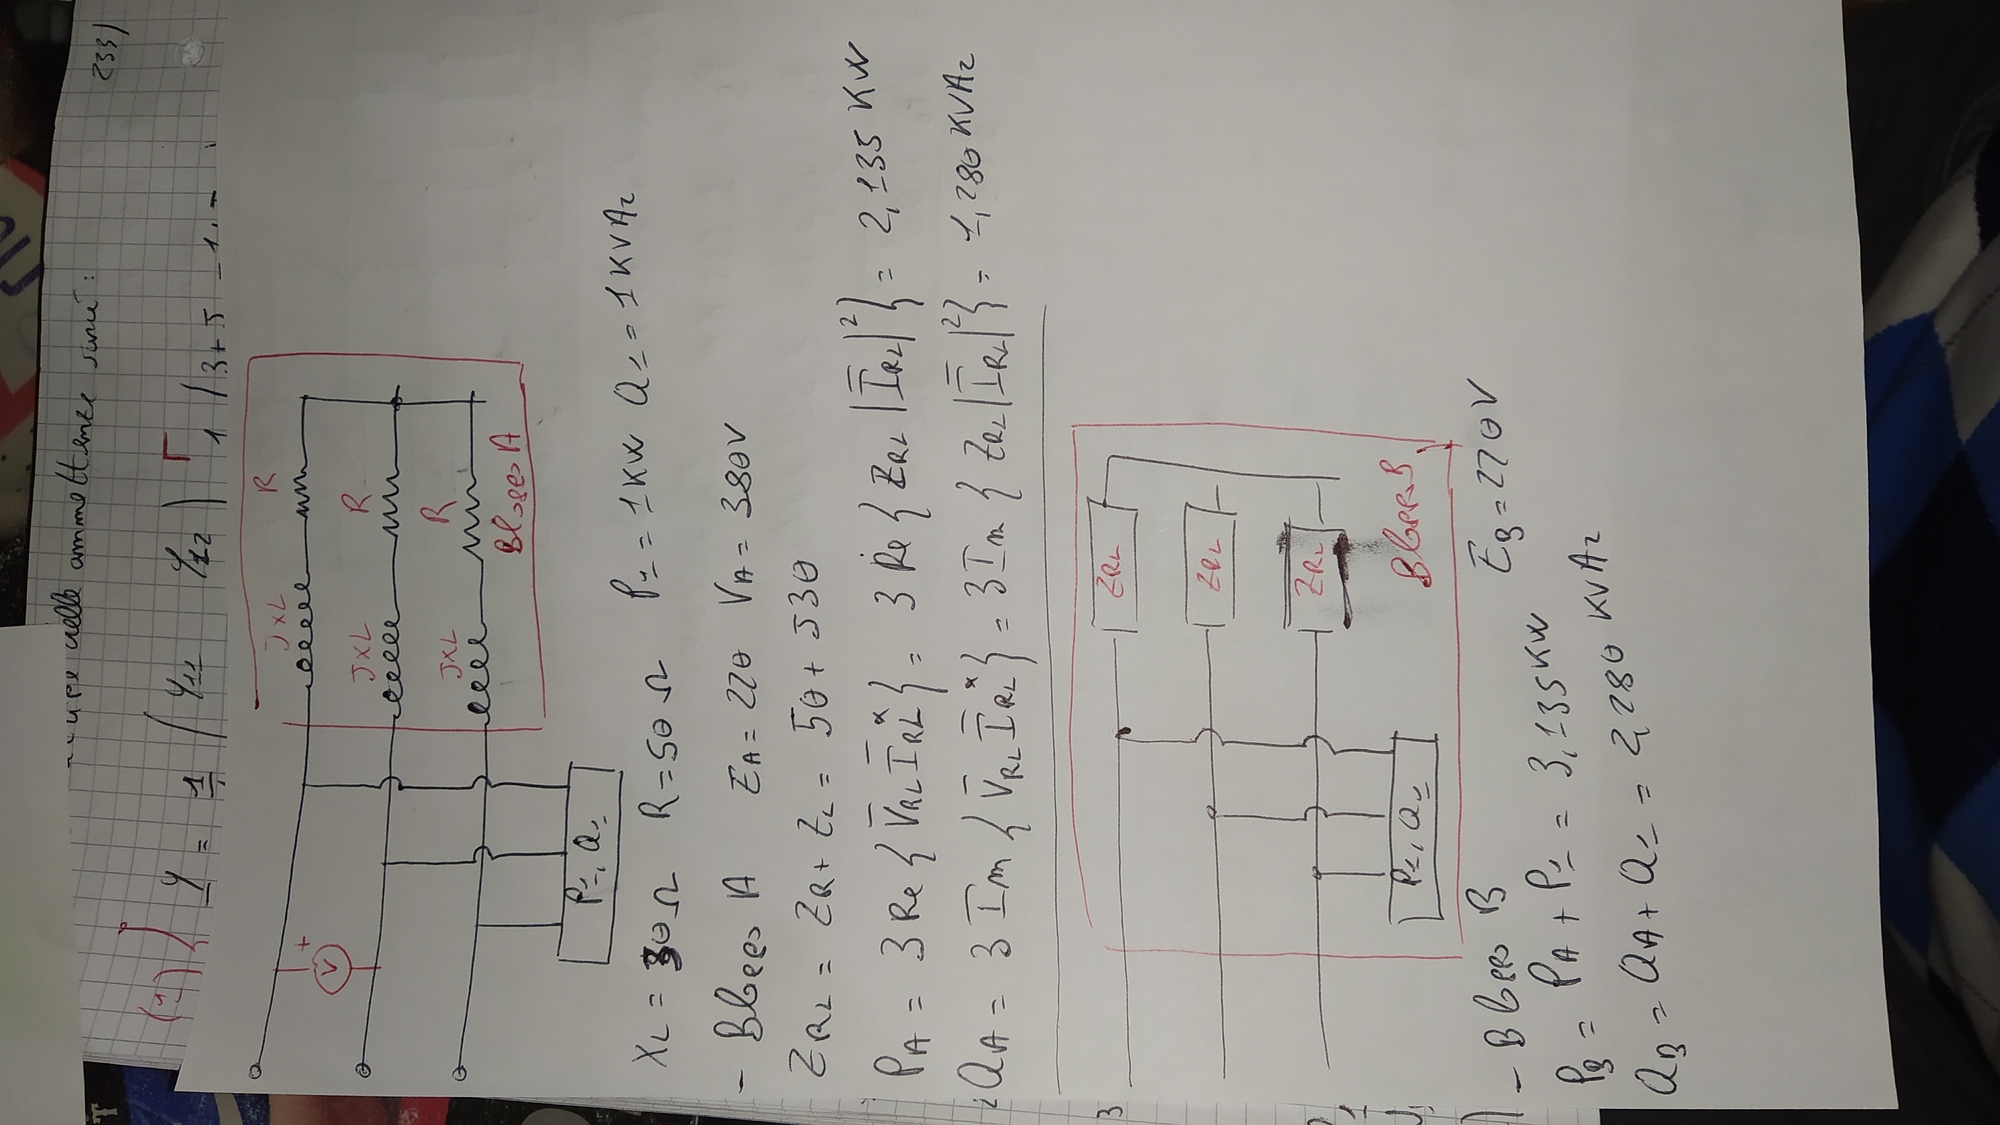 233)
nelle ammettenze sumit:
(1) y = 1 / ( y11 y12 ) 1 / 3+5 - 1
JXL R
V +
JXL R
JXL R
Blocco A
P1, Q1
XL = 30 Ω R = 50 Ω P1 = 1 KW Q1 = 1 KVAr
- Blocco A EA = 220 VA = 380 V
ZRL = ZR + ZL = 50 + J30
PA = 3 Re { V̅RL I̅RL* } = 3 Re { ZRL |I̅RL|² } = 2,135 KW
QA = 3 Im { V̅RL I̅RL* } = 3 Im { ZRL |I̅RL|² } = 1,280 KVAr
ZRL
ZRL
ZRL
Blocco B
P1, Q1
- Blocco B EB = 220 V
PB = PA + P1 = 3,135 KW
QB = QA + Q1 = 2,280 KVAr